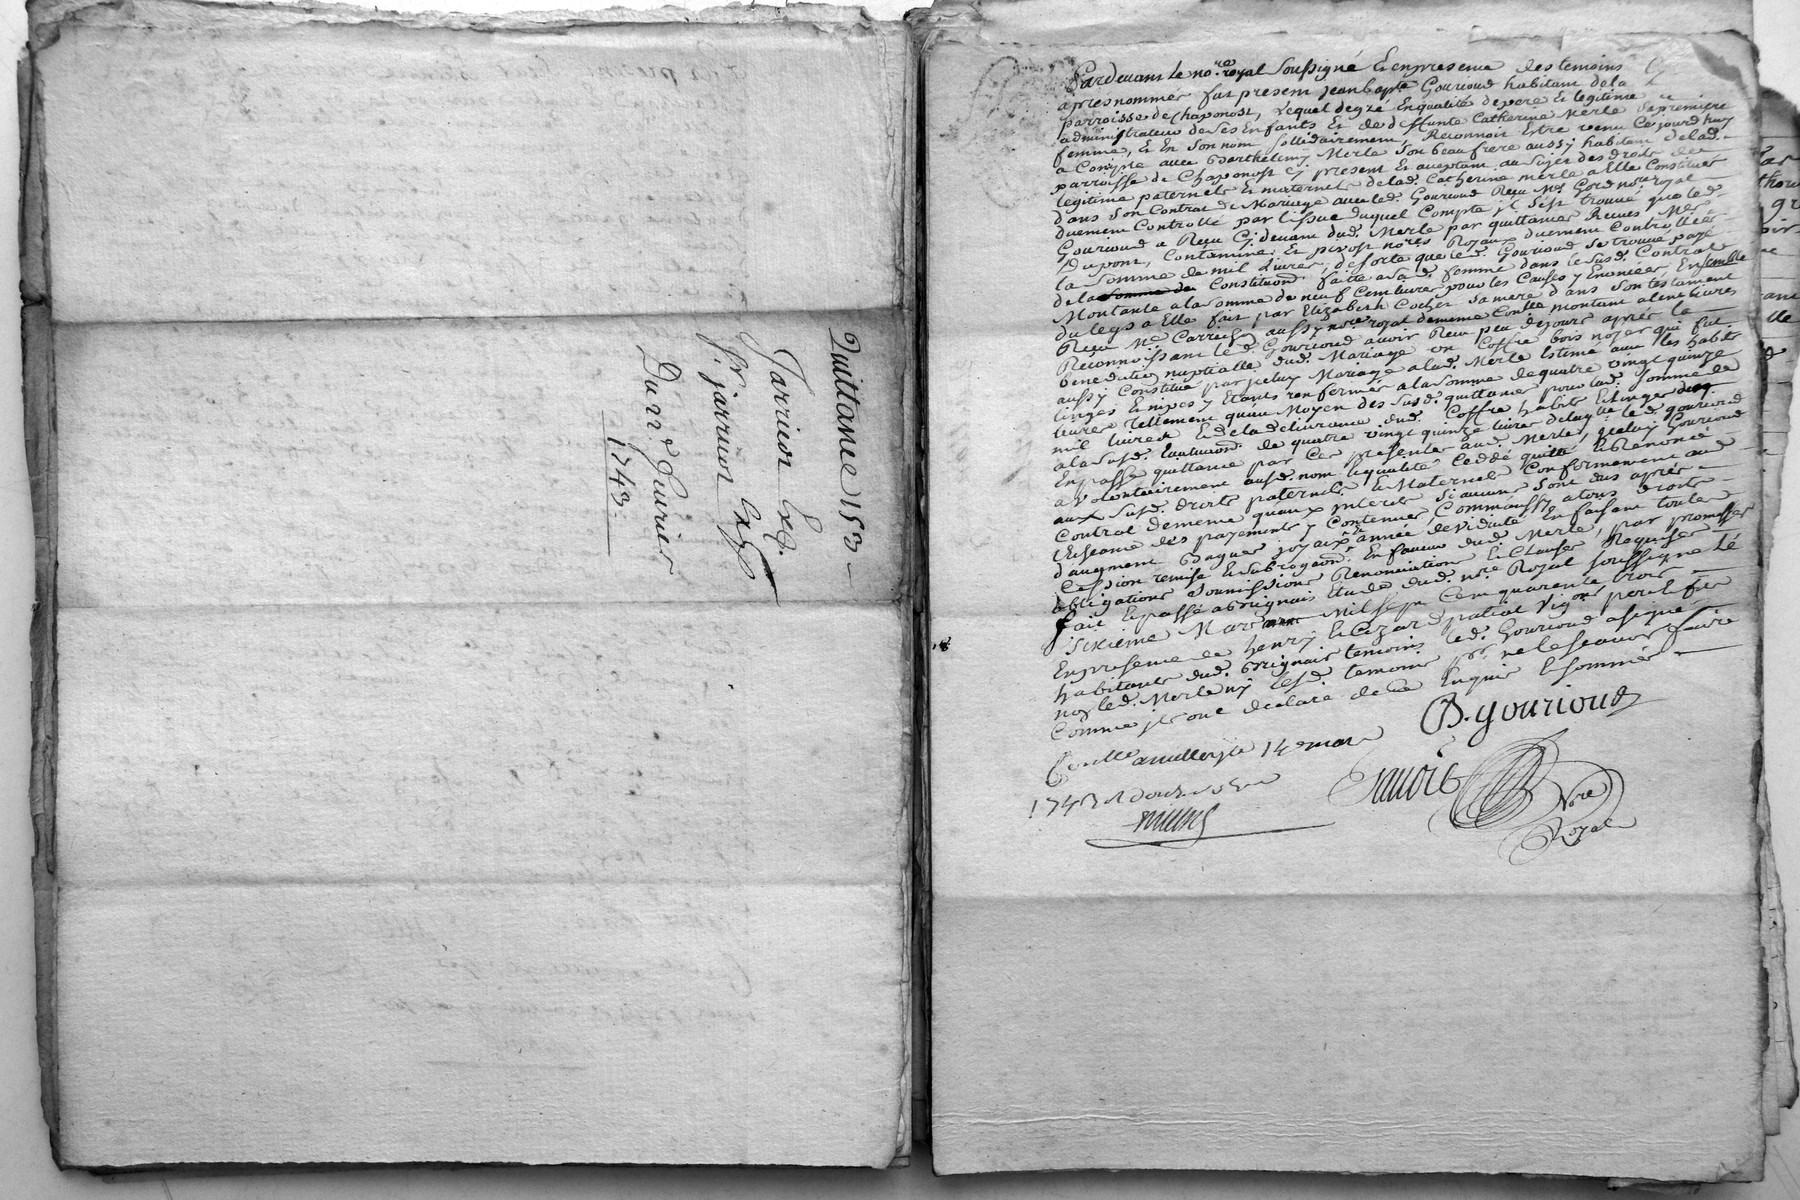 Quittance 153
Jarrieon
fr. jarricon
Du rr.e feurier
1743.
Pardeuant Le no.re royal Soussigné Et en presence des temoins
apres nommes fut present jean bapte Gourioud habitant de la
parroisse de Chaponost, Lequel de gré En qualité de pere Et legitime
administrateur de Ses Enfants Et de deffunte Catherine Merle Sa premiere
femme, Et En Son nom sollidairement, Reconnoit Estre venu Cejourdhuy
a Compte auec Barthelemy Merle Son beaufrere aussy habitant delad.
parroisse de Chaponost Cy present Et acceptant au Sujet des droits de
legitime paternels Et maternels delad. Catherine merle a Elle Constitues
dans Son Contrat de Mariage auec led. Gourioud Recu Me Gord no.re royal
duement Controllé par lissue duquel Compte jl Sest trouvé que led.
Gourioud a Recu Cy deuant dud. Merle par quittances Recues Mes
Dupont, Contamine Et pivost no.res Royaux duement Controllées
la Somme de mil Livres, de sorte que led. Gourioud Se trouve payé
de la Constituon. faitte a sad. femme dans le susd. Contrat
Montante a la Somme de neuf Cent livres pour les Causes y Enoncées, Ensemble
du legs a Elle fait par Elizabeth Cocher Sa mere dans Son testament
Recu Me Carret aussy no.re royal de meme Contlé montant a Cent livres
Reconnoissant led. Gourioud avoir Recu peu de jours apres la
benediction nuptialle dud. Mariage un Coffre bois noyer qui fut
aussy Constitué par jceluy Mariage a lad. Merle Estimé auec les habits
linges Et nipes y Etants renfermés a la Somme de quatre vingt quinze
livres tellement quau Moyen des Susd. quittances pour lad. Somme de
mil livres Et de la delivrance dud. Coffre habits Et linges
a la Susd. Estimaon. de quatre vingt quinze livres delaquelle led. gourioud
En passe quittance par Ces presentes aud. Merle, jceluy Gourioud
a volontairement ausd. nom Et qualité Ceddé quitté Et Renoncé
aux Susd. droits paternels Et Maternels Conformement aud.
Contrat de meme quaux jnterets Si aucuns Sont dus apres
lecheance des payements y Contenus Comm'aussy a tous droits
daugment Bagues joyaux Et année de viduité En faisant toute
Cession remise Et Subrogaon. En faueur dud. Merle, par promesses
obligations Soumissions Renonciations Et Clauses Requises
fait Et passé a brignais Etude dud. no.re Royal soussigné Le
Sixieme Mars Mil Sept Cent quarante trois
En presence de henry Et Cezard patial Vig.ons pere Et fils
habitants dud. Brignais temoins led. Gourioud a signé
non led. Merle ny lesd. temoins pour ne le scauoir faire
Comme jls ont declaré de ce Enquis Et sommés
B. gourioud
Con.lle a mellery le 14e mars
1743 R douze sols
Nore
Royal